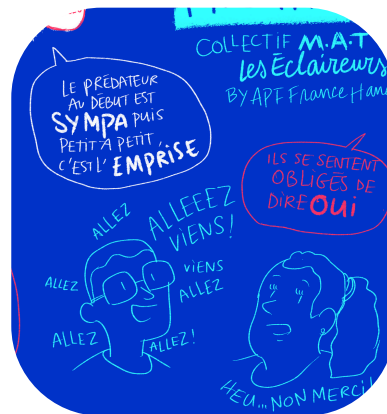 COLLECTIF M.A.T
les Éclaireurs
BY APF France Han
LE PRÉDATEUR
AU DÉBUT EST
SYMPA PUIS
PETIT À PETIT,
C'EST L'EMPRISE
ILS SE SENTENT
OBLIGÉS DE
DIRE OUI
ALLEZ
ALLEEEZ
VIENS!
ALLEZ
VIENS
ALLEZ
ALLEZ
ALLEZ!
HEU... NON MERCI!